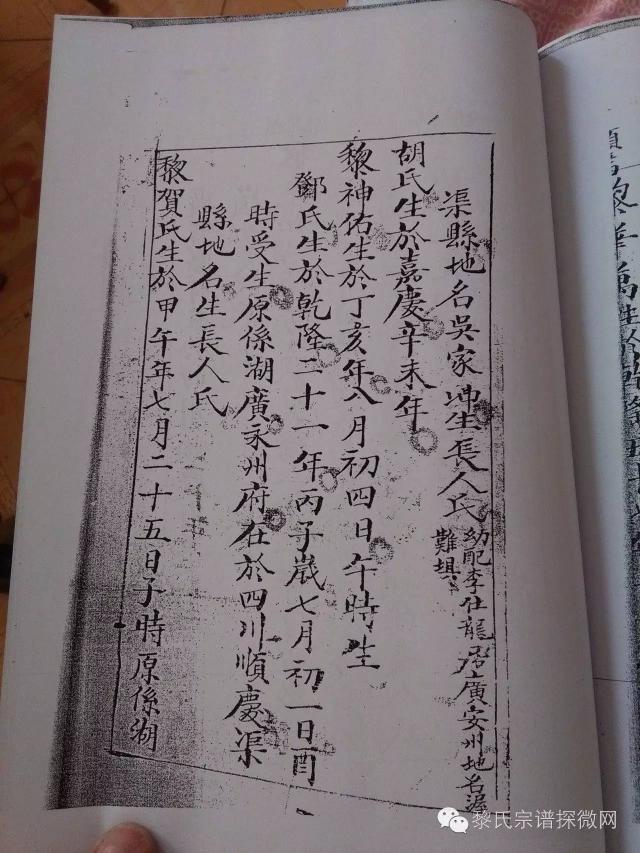 渠縣地名吳家沖生長人氏幼配李仕龍 居廣安州地名渥
難埧
胡氏生於嘉慶辛未年
黎神佑生於丁亥年八月初四日午時生
鄧氏生於乾隆二十一年丙子歲七月初一日酉
時受生原係湖廣永州府在於四川順慶渠
縣地名生長人氏
黎賀氏生於甲午年七月二十五日子時原係湖
黎氏宗谱探微网